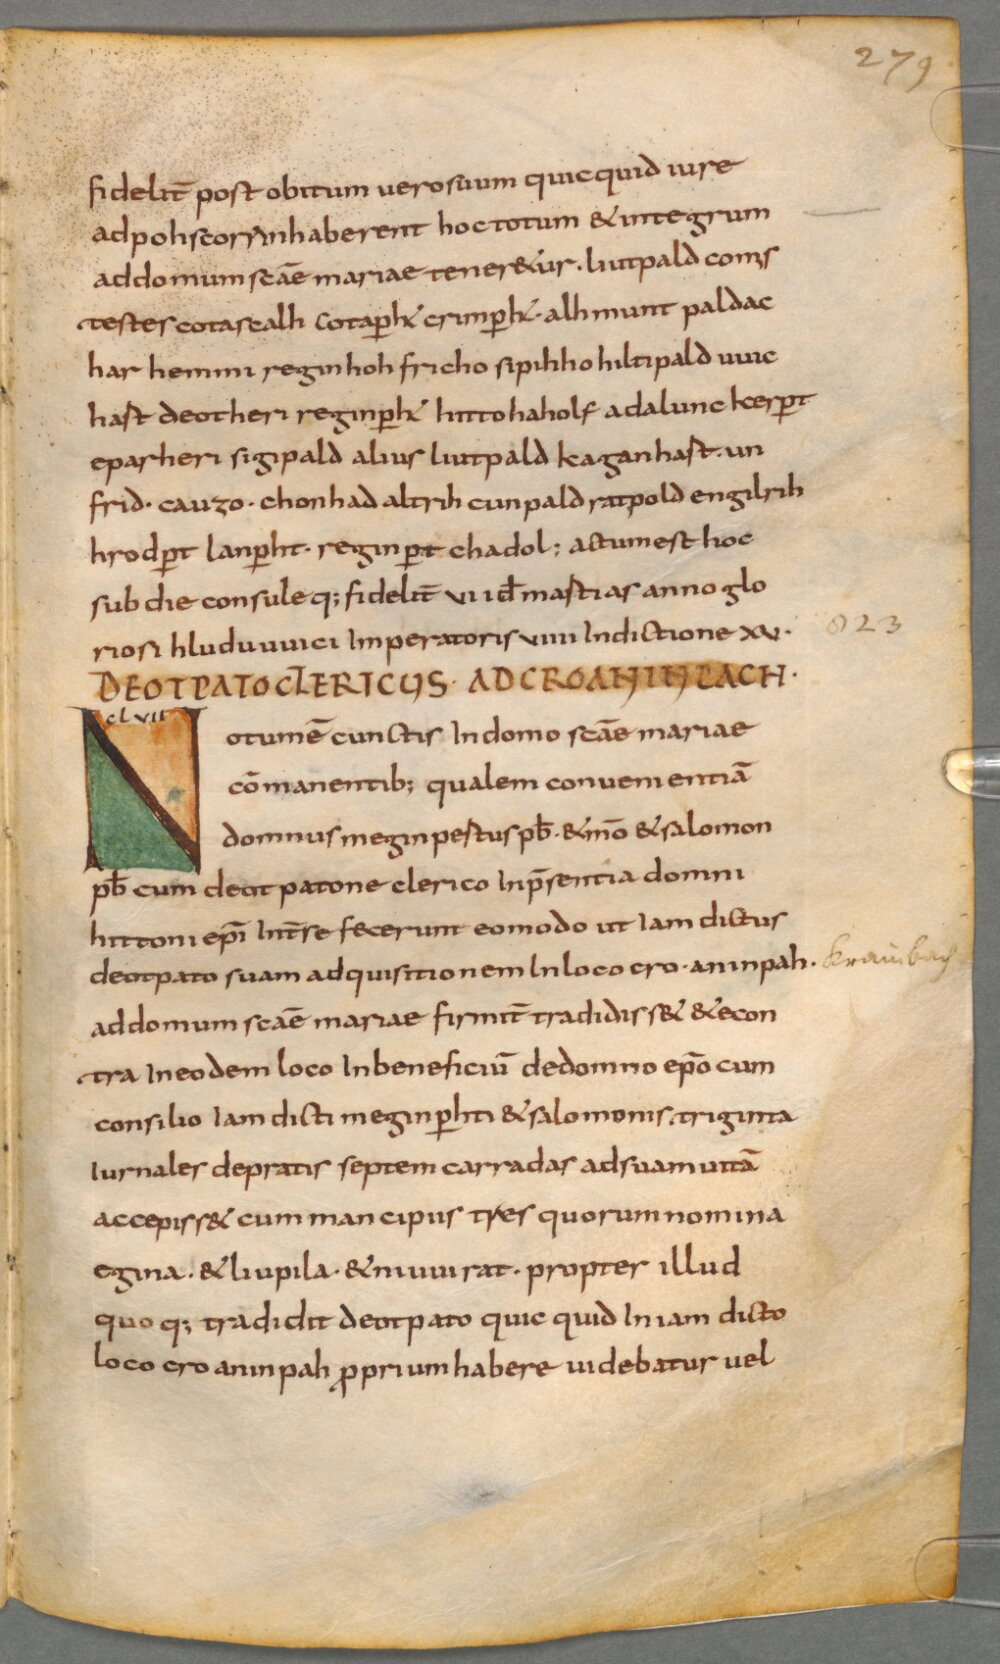 279
fidelit̄ post obitum vero suum quicquid iure
ad poliscorrinhaberent hoc totum & integrum
ad domum scāe mariae tener&ur. liutpald comis
testes cotascalh cotaperht crimperht. alhmunt paldac
har hemmi reginhoh fricho sipihho hiltipald uuic
hast deotheri reginperht hitto haholf adalunc kerpt
eparheri sigipald alius liutpald kaganhast. un
frid. cauzo. chonhad altrih cunpald ratpold engilrih
hrodpt lanpht. reginpt chadol; actum est hoc
sub die consule q; fidelit̄ vi id martias anno glo
riosi hluduuuici Imperatoris viiii Indictione xv.
823
DEOTPATO CLERICUS. AD CROANINPACH.
clvii
Notum ē cunctis In domo scāe mariae
cōmanentib; qualem convenientiā
domnus meginpestus pb̄. & īmo & salomon
pb̄ cum deotpatone clerico In p̄sentia domni
hittoni ep̄i Int̄ se fecerunt eo modo ut Iam dictus
deotpato suam adquisitionem In loco cro. aninpah.
Krainbach
ad domum scāe mariae firmit̄ tradidiss& & econ
tra In eodem loco In beneficiū de domno ep̄o cum
consilio Iam dicti meginperhti & salomonis. triginta
Iurnales de pratis septem carradas ad suam uitā
accepiss& cum mancipiis tres quorum nomina
egina. & liupila. & niuuirat. propter illud
quo q; tradidit deotpato quic quid In iam dicto
loco cro aninpah ꝓprium habere uidebatur uel